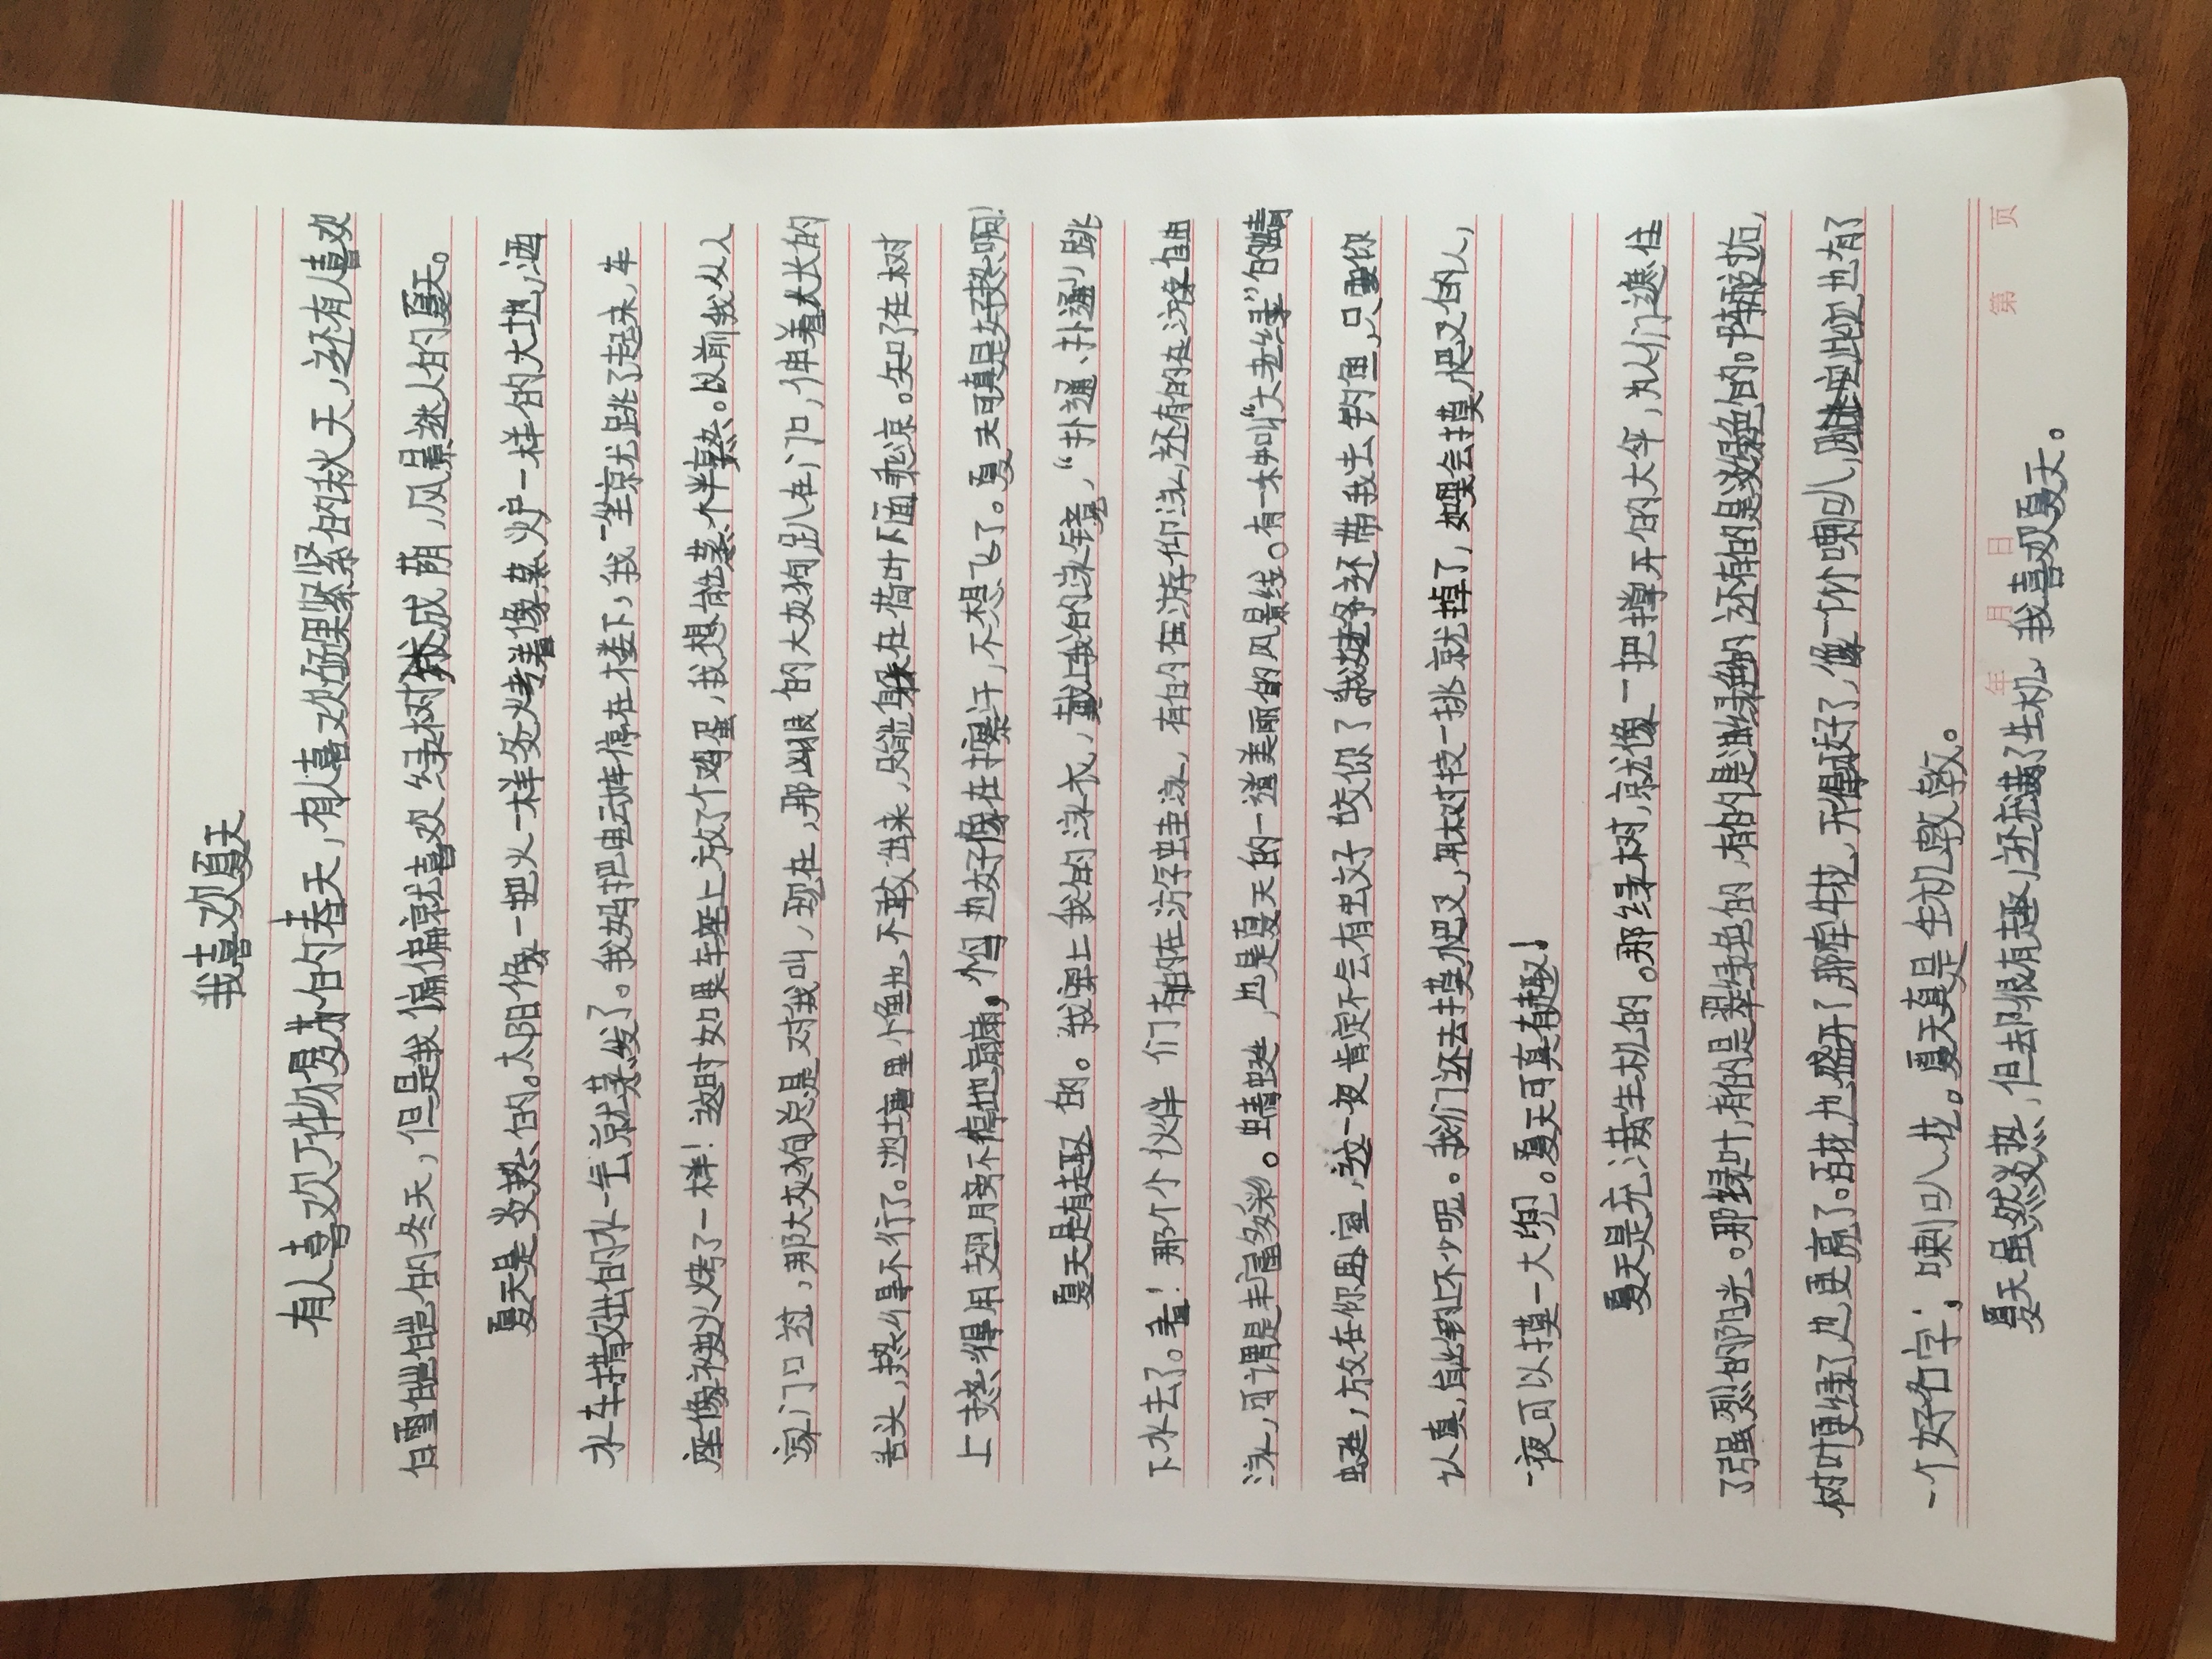 我喜欢夏天
有人喜欢万物复苏的春天，有人喜欢硕果累累的秋天，还有人喜欢
白雪皑皑的冬天，但是我偏偏就喜欢绿树成荫，风景迷人的夏天。
夏天是炎热的。太阳像一把火一样烤着像蒸火炉一样的大地，洒
水车撒出的水一会就蒸发了。我妈把电动车停在楼下，我一坐就跳了起来，车
座像被火烤了一样！这时如果车座上放了个鸡蛋，我想能蒸个半熟。以前我从人
家门口过，那大灰狗总是对我叫，现在，那凶狠的大灰狗趴在门口，伸着长长的
舌头，热得不行了。池塘里小鱼也不敢出来，只能躲在荷叶下面乘凉。知了在树
上热得用翅膀不停地扇扇，也好像在擦汗，不想飞了。夏天可真是好热啊！
夏天是有趣的。我穿上我的泳衣，戴上我的泳镜，“扑通、扑通”跳
下水去了。看！那个个伙伴们有的在浮蛙泳，有的在游仰泳，还有的在游自由
泳，可谓是丰富多彩。蜻蜓，也是夏天的一道美丽的风景线。有一种叫“大老绿”的蜻
蜓，放在你卧室，这一夜肯定不会有蚊子咬你了。我爷爷还带我去钓鱼，只要你
认真，能钓不少呢。我们还去摸爬叉，用树技一挑就掉了，如果会摸爬叉的人，
一夜可以摸一大兜。夏天可真有趣！
夏天是充满生机的。那绿树，就像一把撑开的大伞，为人们遮住
了强烈的阳光。那绿叶，有的是翠绿色的，有的是油绿色的还有的是淡绿色的。阵雨过后，
树叶更绿了也更亮了。百花也盛开了那牵牛花，开得好了，像一个个喇叭，因此也有了
一个好名字；喇叭花。夏天真是生机敦敦。
夏天虽然炎热，但去却很有趣，还充满了生机 我喜欢夏天。
年 月 日 第 页